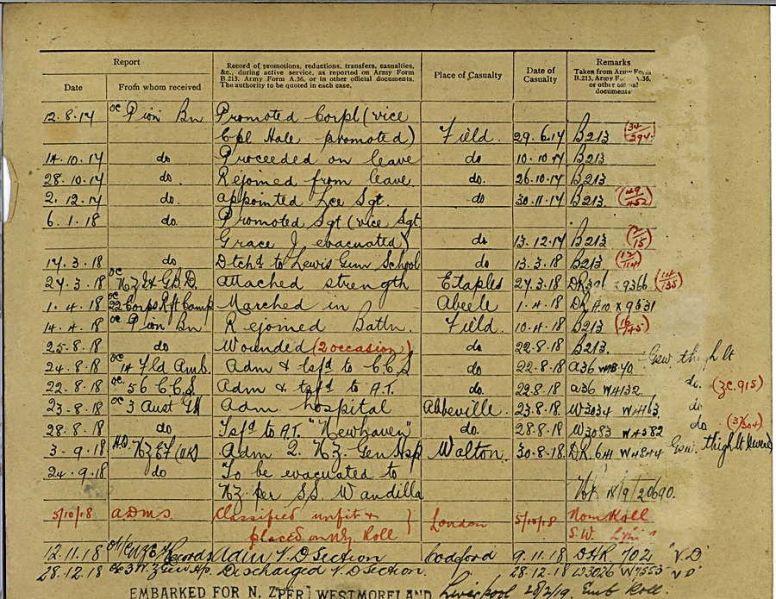 Report
Record of promotions, reductions, transfers, casualties, &c., during active service, as reported on Army Form B.213, Army Form A.36, or in other official documents. The authority to be quoted in each case.
Place of Casualty
Date of Casualty
Remarks
Taken from Army Form B.213, Army Form A.36, or other official documents
Date From whom received
12.8.17 OC Pion Bn Promoted Corpl (vice
Cpl Hale promoted) Field 29.6.17 B213
14.10.17 do Proceeded on leave do 10.10.17 B213
28.10.17 do Rejoined from leave do. 26.10.17 B213
2.12.17 do appointed Lce Sgt. do 30.11.17 B213
6.1.18 do. Promoted Sgt (vice Sgt
Grace J evacuated) do 13.12.17 B213
17.3.18 do Dtchd to Lewis Gun School do 13.3.18 B213
27.3.18 OC attached strength Etaples 27.3.18 9366
1.4.18 OC 22 Corps Rft Camp Marched in Abeele 1.4.18 9531
14.4.18 OC Pion Bn Rejoined Battn. Field 10.4.18 B213
25.8.18 do Wounded (2 occasion) do. 22.8.18 B213. Gsw thigh lt
24.8.18 Fld Amb. Adm & tsfd to C.C.S do 22.8.18 a36
22.8.18 56 C.C.S. Adm & tsfd to A.T. do 22.8.18 a36 WA132 do. (3c.915)
23.8.18 3 Aust GH Adm hospital Abbeville. 23.8.18 W3034 do
28.8.18 do Tsfd to A.T. "Newhaven" do. 28.8.18 W3083 WA582 do
3.9.18 NZEF (UK) Adm 2. NZ. Gen Hsp Walton 30.8.18 thigh lt
24.9.18 do To be evacuated to
NZ per SS Wandilla
5/10/18 ADMS Classified unfit &
placed on NZ Roll London 5/10/18 Nom Roll
12.11.18 Records V.D Section Codford 9.11.18 702 "V.D"
28.12.18 Discharged V.D Section. 28.12.18
EMBARKED FOR N. Z PER WESTMORELAND Liverpool Emb Roll.